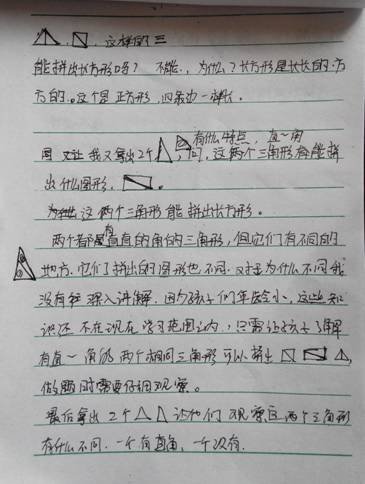 这样的三
能拼出长方形吗？不能，为什么？长方形是长长的方
方的。这个是正方形，四条边一样长。
有什么特点，直角
又让我又拿出2个，问，这两个三角形能拼
出什么图形，。
这两个三角形能拼出长方形。
两个都有直直的角的三角形，但它们有不同的
地方，它们拼出的图形也不同。对于为什么不同我
没有给深入讲解，因为孩子们年龄小，这些知
识还不在现在学习范围之内，只需让孩子了解
有直角的两个相同三角形可以拼出
做题时需要仔细观察。
最后拿出2个让他们观察这两个三角形
有什么不同，一个有直角，一个没有.